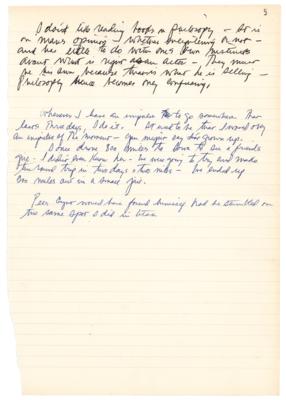 5
I don't like reading books on philosophy – it is
one man's opinion – whether enlightening or not –
and has little to do with one's own instincts
about what is right action – They must
be his own because that's what he is selling –
Philosophy hence becomes only confusing.
Whenever I have an impulse to go somewhere that
lasts three days, I do it. It used to be that I moved on
an impulse of the moment – You might say I've grown up.
I once drove 300 miles to to see a friend's
I didn't even know her – he was going to try and make
the round trip in two days – We ended up
miles out in a small
Peer Gynt would have found himself had he stumbled on
the same spot I did in